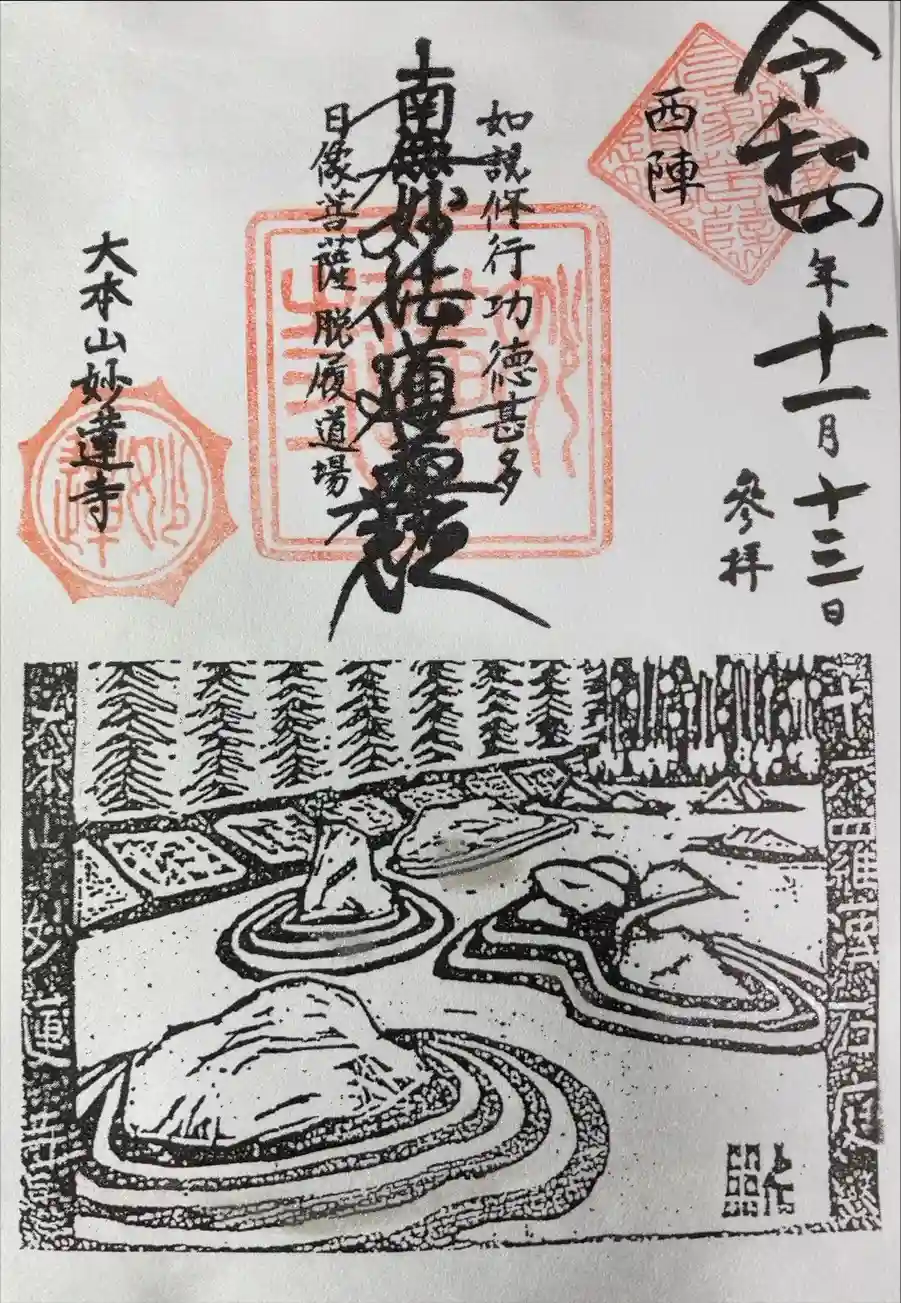 令和四年十一月十三日
參拝
西陣
如説修行功徳甚多
南無妙法蓮華経
日像菩薩脱履道場
大本山妙蓮寺
十六羅漢石庭
大本山妙蓮寺